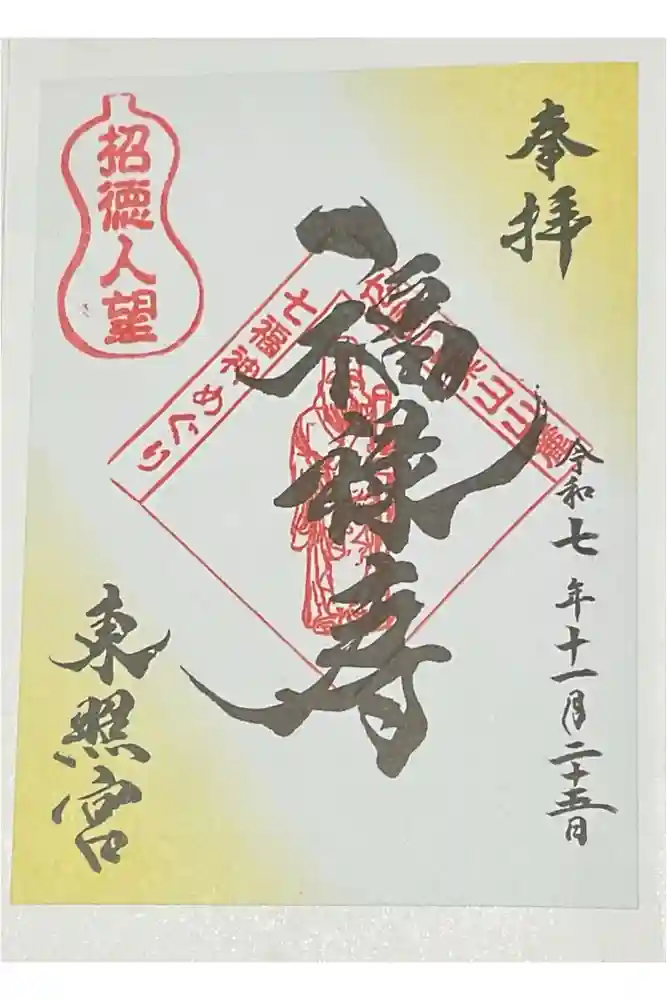 奉拝
福禄寿
令和七年十一月二十五日
招徳人望
七福神めぐり
東照宮